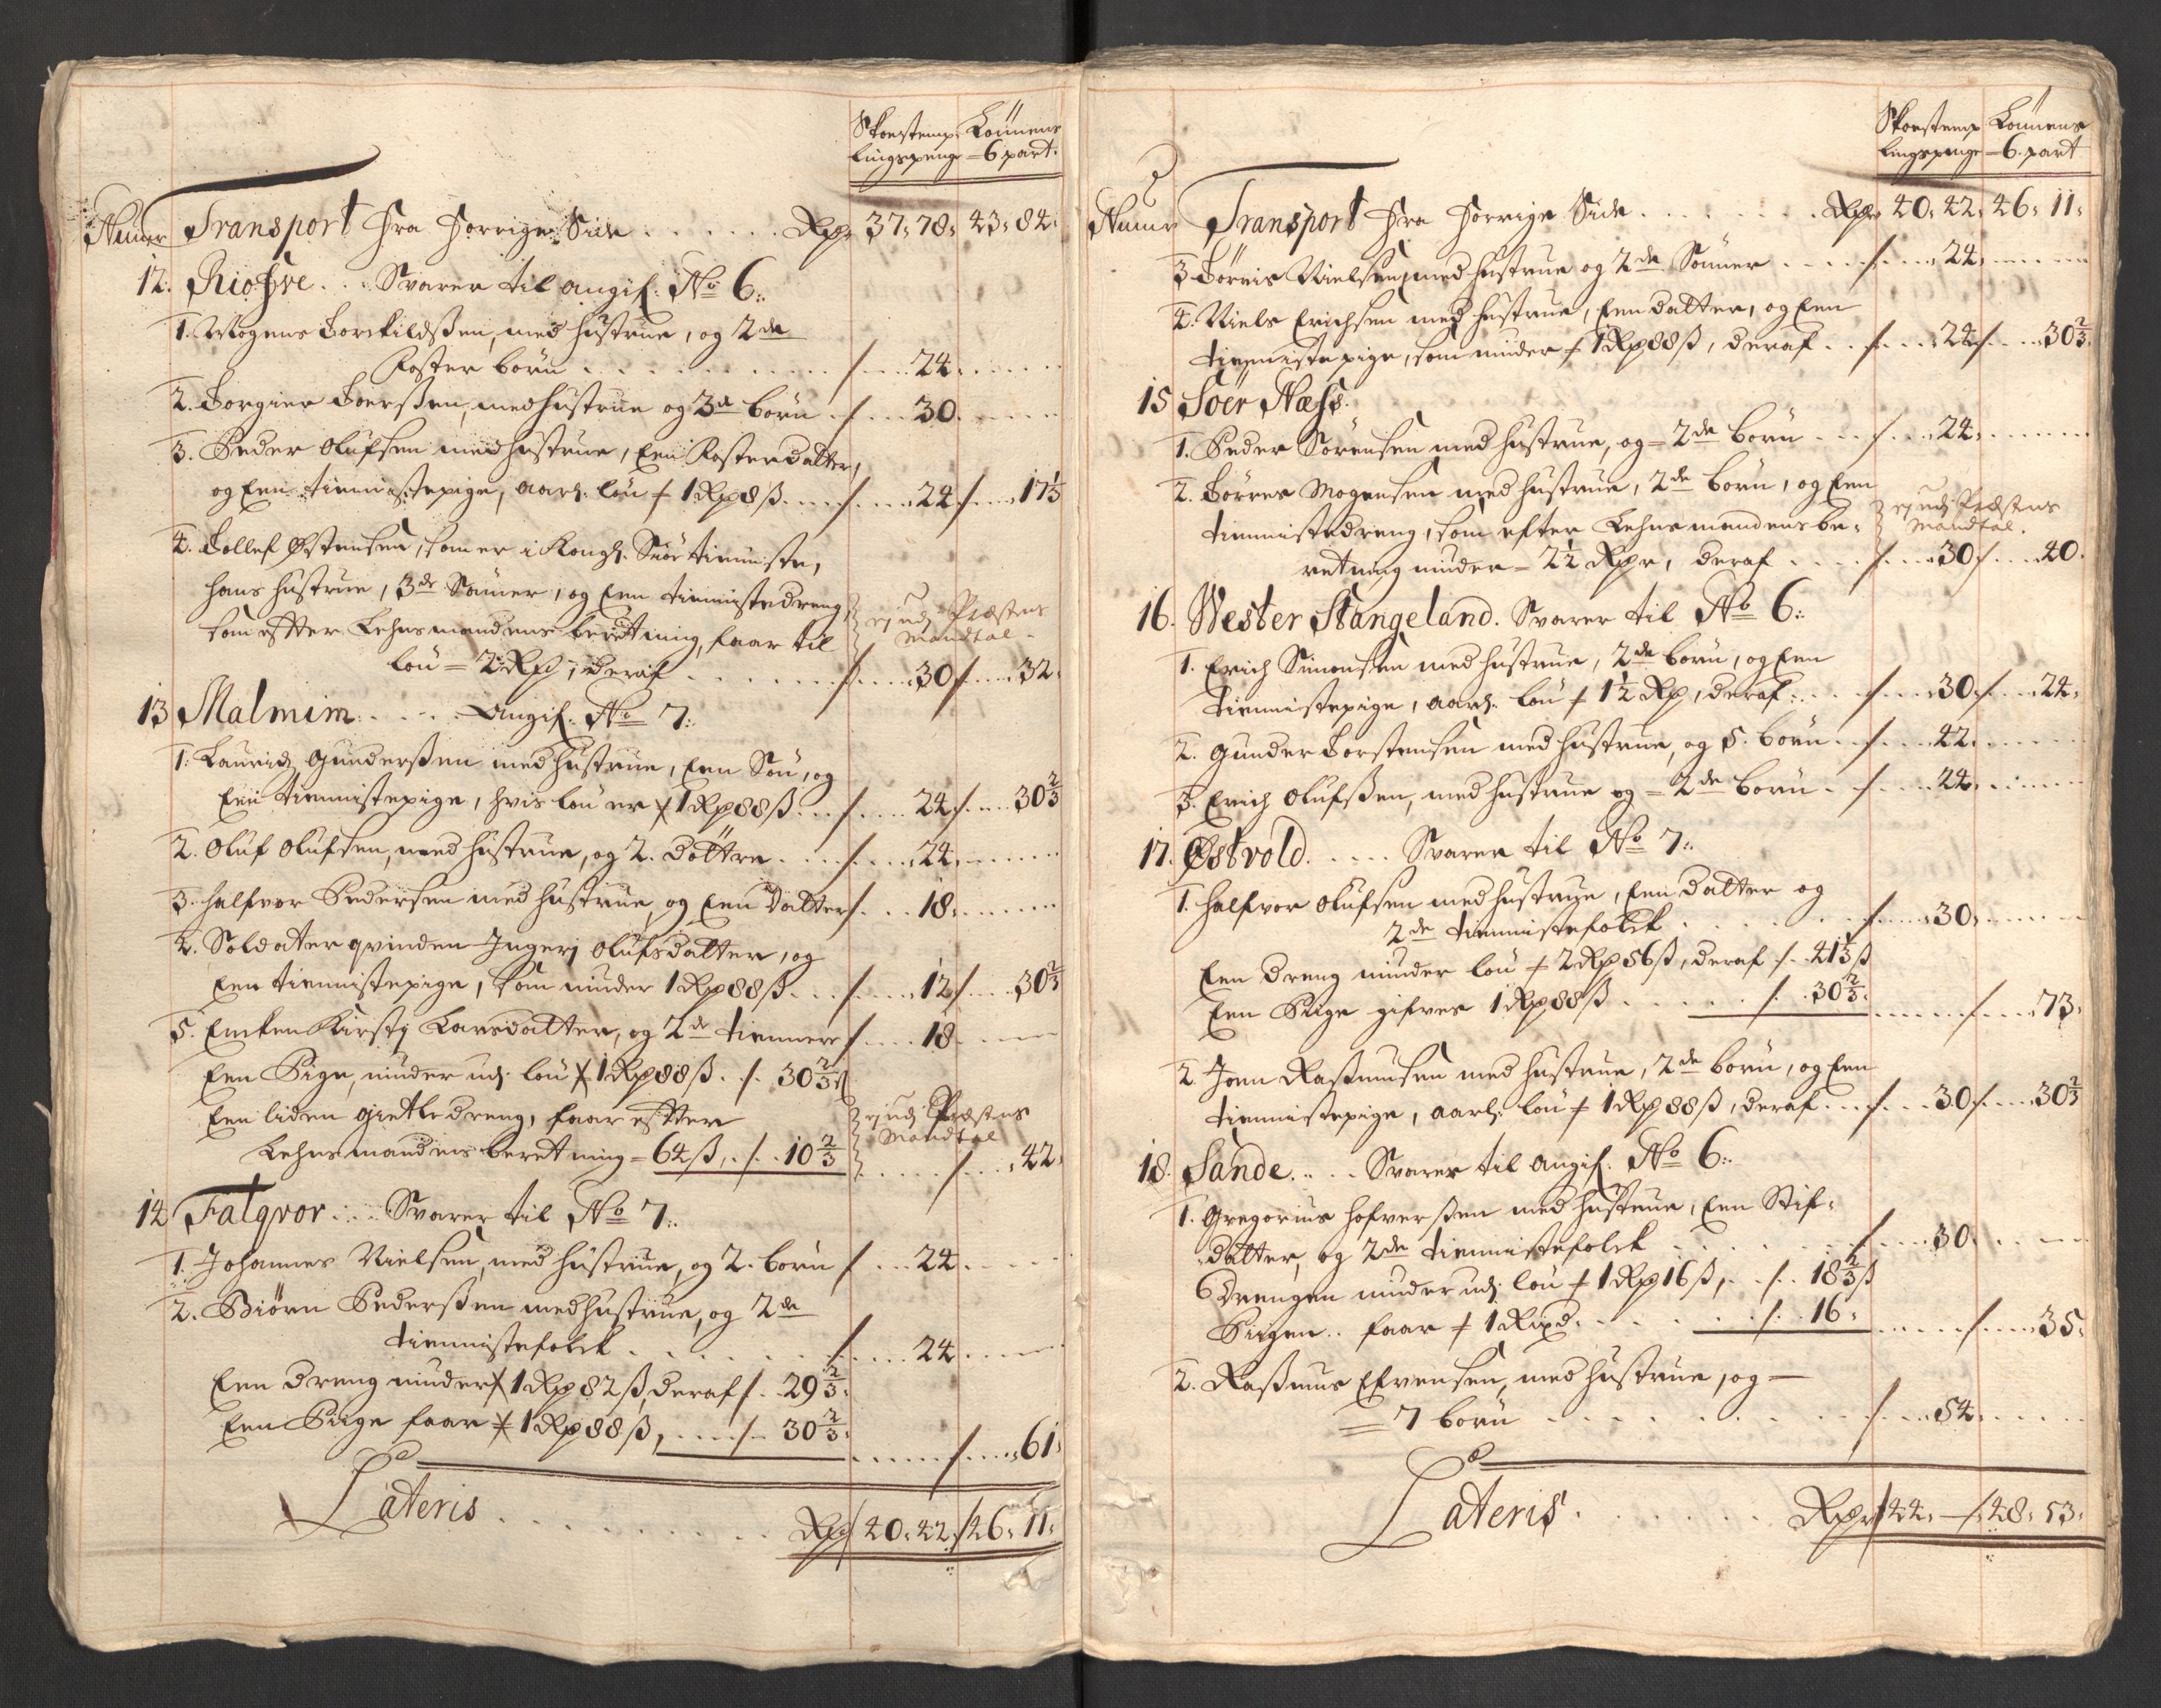 Skoestemp- Lønnens
lingspenge 6 part.
Numr Transport Fra Forrige Side ...... Rdr 37: 78: 43: 84:
12. Riofre ... Svarer til angif. No 6:
1. Mogens Torkildsen, med hustrue, og 2de
foster børn ........ / ... 24
2. Torgier Toersen, med hustrue og 3de børn / ... 30.
3. Peder Olufsen med hustrue, Een Fosterdatter,
og Een tienniste pige, aarl. løn / 1 Rdr 8 ß ... / ... 24 / ... 17 1/3
4. Tollef Østensen, som er i Kongl. Søe tienniste,
hans hustrue, 3de Sønner, og Een tiennistedreng,
som efter Lehnsmandens beretning, faar til
løn = 2 Rdr, deraf ...... / ... 30 / ... 32:
ej udj Præstens
Mandtal.
13 Malmim ..... Angif. No 7:
1: Lauridz Gundersen med hustrue, Een Søn, og
Een tiennistepige, hvis løn er / 1 Rdr 88 ß ... / ... 24 / ... 30 2/3
2. Oluf Olufsen, med hustrue, og 2. døttre ... / ... 24
3. Halfvor Pedersen med hustrue og Een Datter / ... 18:
4. Soldater qvinden Ingerj Olufsdatter, og
Een tiennistepige, som nÿder 1 Rdr 88 ß ... / ... 12 / ... 30 2/3
5. Encken Kirstj Larsdatter, og 2de tiennere / ... 18
Een Pige, nÿder udj løn / 1 Rdr 88 ß . / . 30 2/3 ß
Een liden giætledreng, faar efter
Lehnsmandens beretning = 64 ß, . / . 10 2/3 ..... / ... 42:
ej udj Præstens
Mandtal
14 Falqvor .... Svarer til No 7:
1. Johannes Nielsen, med hustrue, og 2. børn / ... 24
2. Biørn Pedersen med hustrue, og 2de
tiennistefolck ....... / ... 24
Een dreng nÿder / 1 Rdr 82 ß, deraf / . 29 2/3:
Een Piige faar / 1 Rdr 88 ß, ... / . 30 2/3: ..... / ... 61:
Lateris ......... Rdr / 40: 42: / 46: 11:
Skoestemp Lønnens
lingspenge 6. part
Numr Transport Fra Forrige Side ...... Rdr 40: 42: 46: 11:
3 Tørris Nielsen, med hustrue og 2de Sønner ... / ... 24:
4. Niels Erichsen med hustrue, Een datter, og Een
tienniste pige, som nÿder / 1 Rdr 88 ß, deraf ... / ... 24 / ... 30 2/3.
15 Søer Næss.
1. Peder Sørensen med hustrue, og = 2de børn ... / ... 24:
2. Tørres Mogensen med hustrue, 2de børn, og Een
tiennistedreng, som efter Lehnsmandens be-
retning nÿder = 2 1/2 Rdr, deraf .... / ... 30 / ... 40.
ej udj Præstens
Mandtal.
16. Wester Stangeland. Svarer til No 6:
1. Erich Simensen med hustrue, 2de børn, og Een
Tiennistepige, aarl. løn / 1 1/2 Rdr, deraf ... / ... 30 / ... 24:
2. Gunder Torstensen med hustrue, og 5. børn .. / ... 42.
3. Erich Olufsen, med hustrue og = 2de børn . / ... 24:
17. Østvold ..... Svarer til No 7:
1. Halfvor Olufsen med hustrue, Een datter og
2de tiennistefolck ..... / ... 30:
Een dreng nÿder løn / 2 Rdr 56 ß, deraf / . 41 1/3 ß
Een Piige gifves 1 Rdr 88 ß ..... / . 30 2/3: ..... / ... 73:
2. Joen Rasmusen med hustrue, 2de børn, og Een
tiennistepige, aarl: løn / 1 Rdr 88 ß, deraf .. / ... 30 / ... 30 2/3
18. Sande .... Svarer til angif. No 6:
1. Gregorius Hofversen med hustrue, Een Stif-
datter, og 2de tiennistefolck ...... / ... 30
Drengen nÿder udj løn / 1 Rdr 16 ß, . / . 18 2/3 ß
Piigen .. faar / 1 Rixd. .... / . 16: ..... / ... 35:
2. Rasmus Efvensen, med hustrue, og
= 7 børn ....... / ... 54
Lateris ...... Rdr / 44: - / 48: 53: